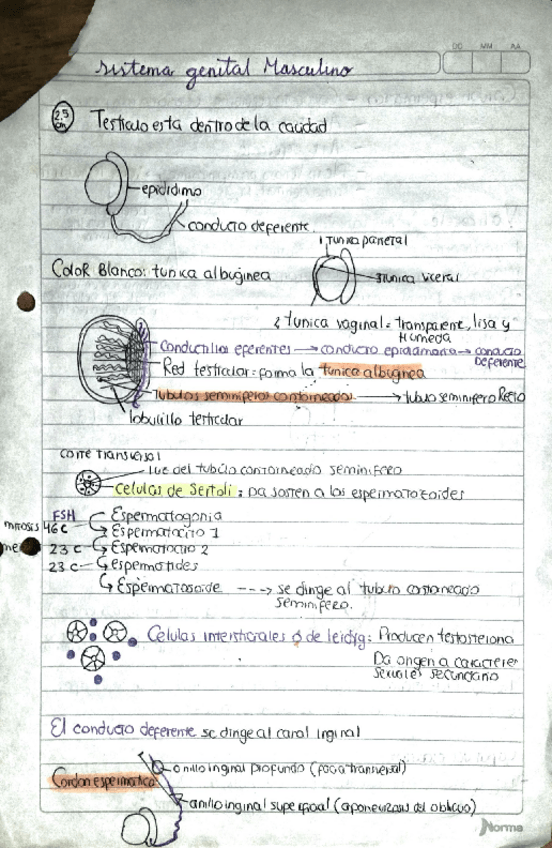 DD MM AA
Sistema genital Masculino
2.5 cm
Testiculo esta dentro de la cavidad
epididimo
conducto deferente.
1 Tunica parietal
Color Blanco: tunica albuginea
3 tunica viceral
2 tunica vaginal = transparente, lisa y
Humeda
Conductillos eferentes → conducto epididimario → conducto
Deferente
Red testicular: forma la tunica albuginea
Tubulos seminiferos contorneados → tubulo seminifero Recto
lobulillo testicular
corte transversal
luz del tubulo contorneado seminifero
Celulas de Sertoli: Da sosten a los espermatozoides
FSH Espermatogonia
mitosis 46 C Espermatocito 1
me 23 C Espermatocito 2
23 C espermatides
Espermatosoide ---> se dirige al tubulo contorneado
seminifero.
Celulas intersticiales ó de leidig: Producen testosterona
Da origen a caracteres
sexuales secundario
El conducto deferente se dirige al canal inginal
anillo inginal profundo (facia transversal)
Cordon espermatico
anillo inginal superficial (aponeurosis del oblicuo)
Norma